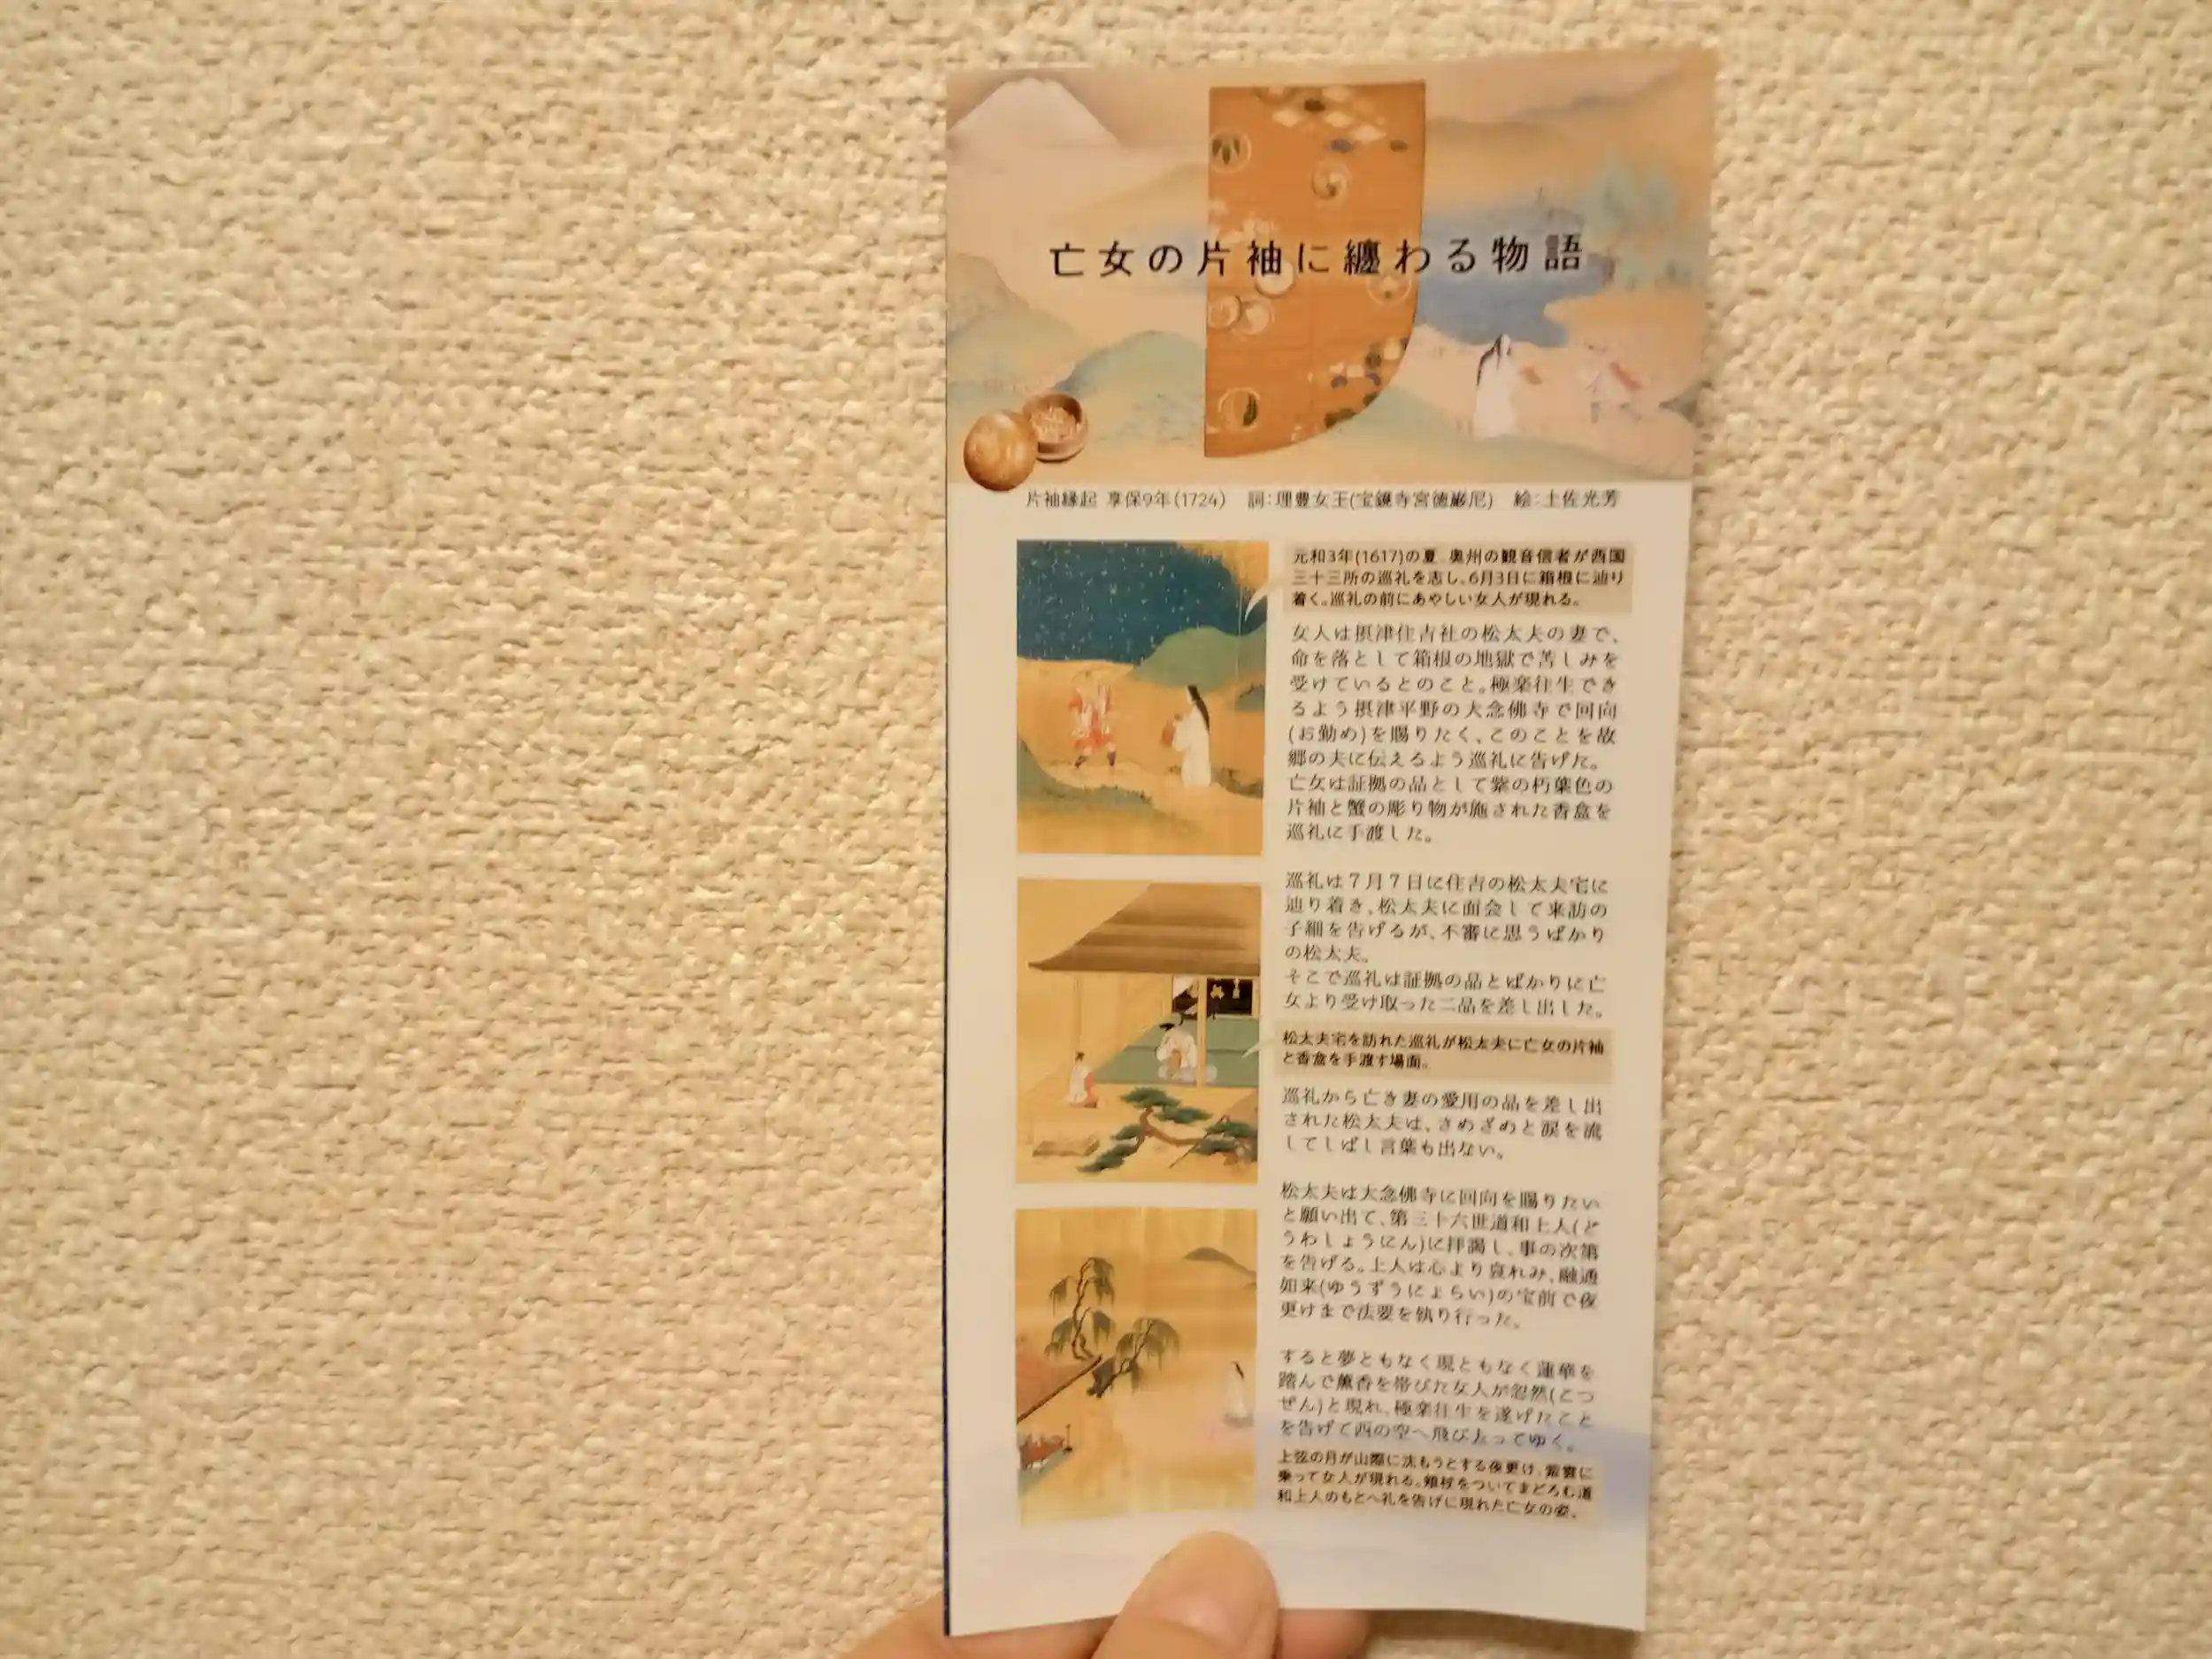 亡女の片袖に纏わる物語
片袖縁起 享保9年(1724) 詞:理豊女王(宝鏡寺宮徳巌尼) 絵:土佐光芳
元和3年(1617)の夏、奥州の観音信者が西国
三十三所の巡礼を志し、6月3日に箱根に辿り
着く。巡礼の前にあやしい女人が現れる。
女人は摂津住吉社の松太夫の妻で、
命を落として箱根の地獄で苦しみを
受けているとのこと。極楽往生でき
るよう摂津平野の大念佛寺で回向
(お勤め)を賜りたく、このことを故
郷の夫に伝えるよう巡礼に告げた。
亡女は証拠の品として紫の朽葉色の
片袖と蟹の彫り物が施された香盒を
巡礼に手渡した。
巡礼は7月7日に住吉の松太夫宅に
辿り着き、松太夫に面会して来訪の
子細を告げるが、不審に思うばかり
の松太夫。
そこで巡礼は証拠の品とばかりに亡
女より受け取った二品を差し出した。
松太夫宅を訪れた巡礼が松太夫に亡女の片袖
と香盒を手渡す場面。
巡礼から亡き妻の愛用の品を差し出
された松太夫は、さめざめと涙を流
してしばし言葉も出ない。
松太夫は大念佛寺に回向を賜りたい
と願い出て、第三十六世道和上人(ど
うわしょうにん)に拝謁し、事の次第
を告げる。上人は心より哀れみ、融通
如来(ゆうずうにょらい)の宝前で夜
更けまで法要を執り行った。
すると夢ともなく現ともなく蓮華を
踏んで薫香を帯びた女人が忽然(こつ
ぜん)と現れ、極楽往生を遂げたこと
を告げて西の空へ飛び去ってゆく。
上弦の月が山際に沈もうとする夜更け、紫雲に
乗って女人が現れる。頬杖をついてまどろむ道
和上人のもとへ礼を告げに現れた亡女の姿。